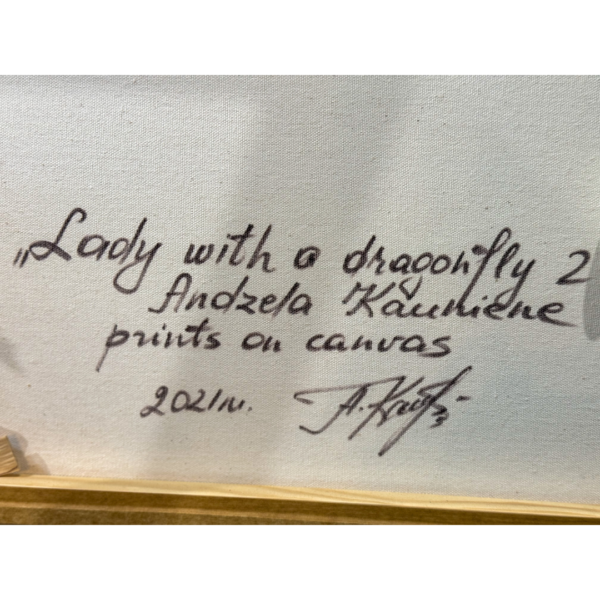 „Lady with a dragonfly 2
Andzela Kauniene
prints on canvas
2021m.